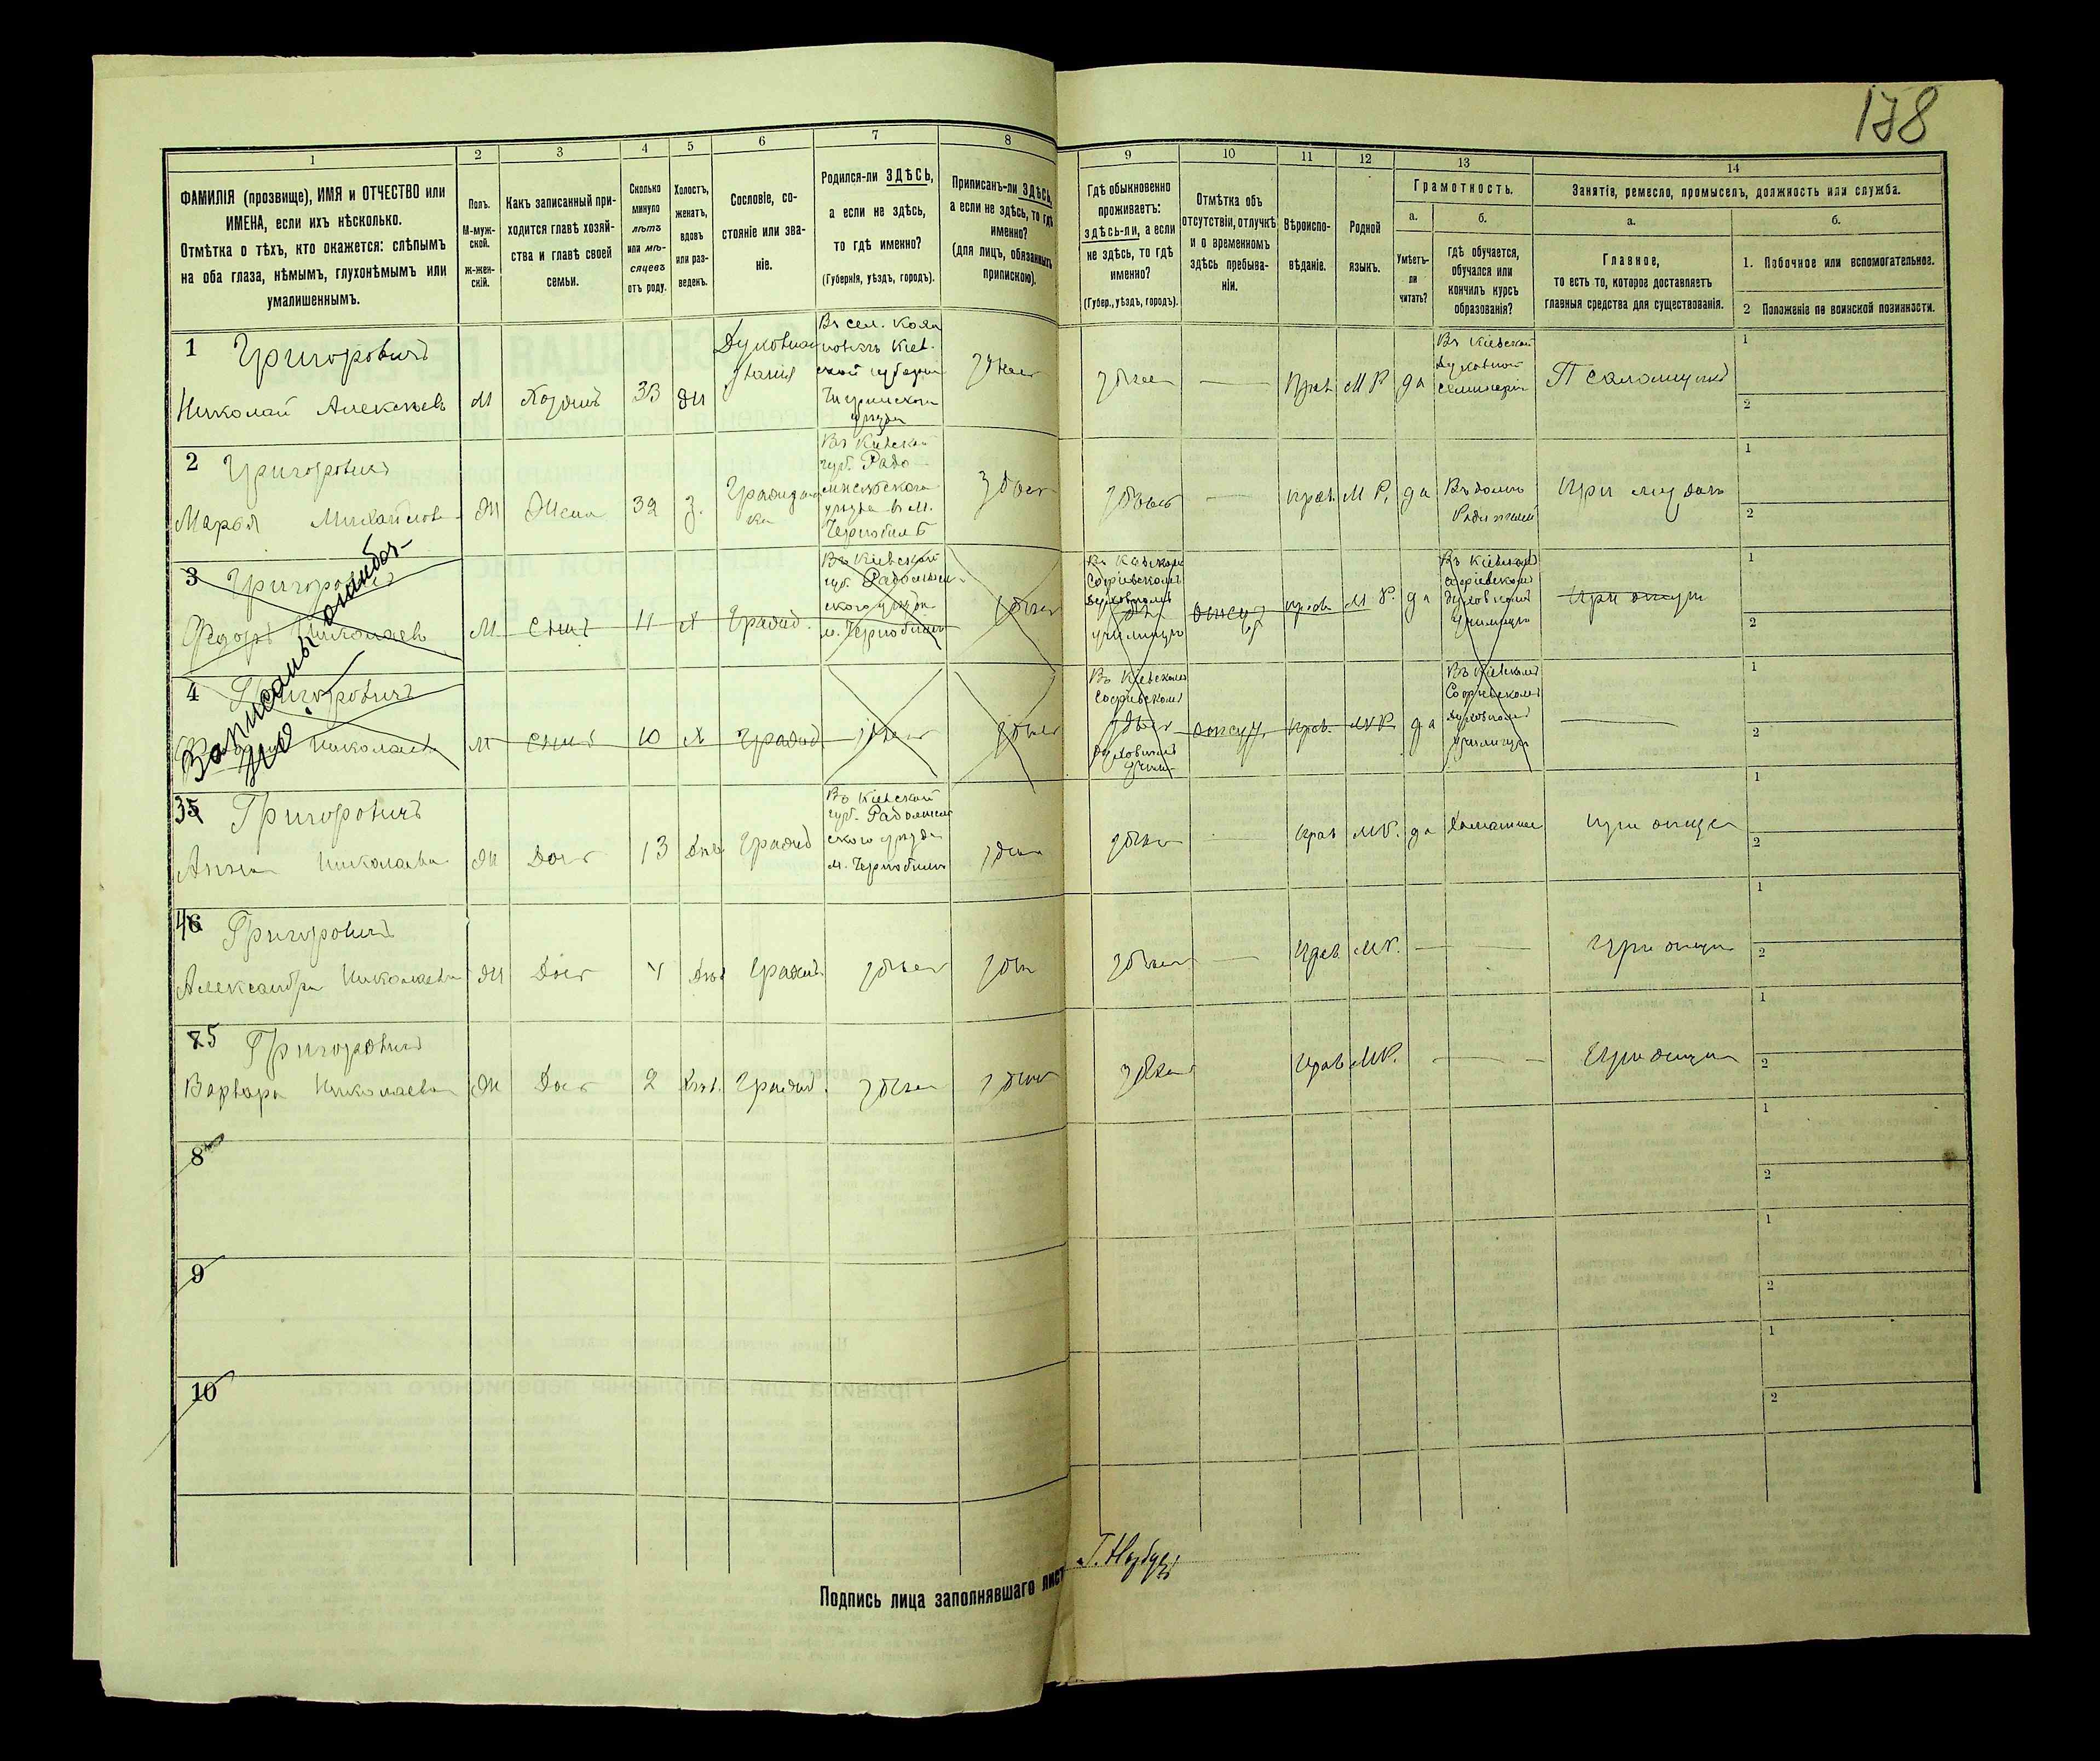 178
1
2
3
4
5
6
7
8
9
10
11
12
13
14
ФАМИЛІЯ (прозвище), ИМЯ и ОТЧЕСТВО или
ИМЕНА, если ихъ нѣсколько.
Отмѣтка о тѣхъ, кто окажется: слѣпымъ
на оба глаза, нѣмымъ, глухонѣмымъ или
умалишеннымъ.
Полъ.
М-муж-
ской.
ж-жен-
скій.
Какъ записанный при-
ходится главѣ хозяй-
ства и главѣ своей
семьи.
Сколько
минуло
лѣтъ
или мѣ-
сяцевъ
отъ роду.
Холостъ,
женатъ,
вдовъ
или раз-
веденъ.
Сословіе, со-
стояніе или зва-
ніе.
Родился-ли ЗДѢСЬ,
а если не здѣсь,
то гдѣ именно?
(Губернія, уѣздъ, городъ).
Приписанъ-ли ЗДѢСЬ,
а если не здѣсь, то гдѣ
именно?
(для лицъ, обязанныхъ
припискою).
Гдѣ обыкновенно
проживаетъ:
здѣсь-ли, а если
не здѣсь, то гдѣ
именно?
(Губер., уѣздъ, городъ).
Отмѣтка объ
отсутствіи, отлучкѣ
и о временномъ
здѣсь пребыва-
ніи.
Вѣроиспо-
вѣданіе.
Родной
языкъ.
Грамотность.
а.
Умѣетъ-
ли
читать?
б.
гдѣ обучается,
обучался или
кончилъ курсъ
образованія?
Занятія, ремесло, промыселъ, должность или служба.
а.
Главное,
то есть то, которое доставляетъ
главныя средства для существованія.
б.
1. Побочное или вспомогательное.
2 Положеніе по воинской повинности.
1 Григоровичъ
Николай Алексѣевъ
М
Хозяинъ
33
Духовнаго
званія
Кіев-
ской губерніи
Чигринскаго
уѣзда
здѣсь
здѣсь
—
Прав.
М Р
да
Въ Кіевской
духовной
семинаріи
Псаломщикъ
1
2
2 Григоровичъ
Марья Михайлова
Ж
Жена
32
з.
Граждан
ка
Въ Кіевской
губ. Радо-
мысльского
уѣзда в м.
Чернобилѣ
здѣсь
здѣсь
—
прав.
М Р.
да
Въ домѣ
Родителей
при мужѣ
1
2
3 Григоровичъ
Федоръ Николаевъ
М
Сынъ
11
Х
Гражд.
Въ Кіевской
губ. Радомысл-
ского уѣзда
м. Чернобиль
здѣсь
Въ Кіевскомъ
Софіевскомъ
Духовномъ
училищѣ
прав.
М Р.
да
Въ Кіевскомъ
Софіевскомъ
духовномъ
училищѣ
при отцѣ
1
2
Записаны ошибоч-
но.
4 Григоровичъ
Николаевъ
М
Сынъ
10
Х
Гражд
здѣсь
здѣсь
Въ Кіевскомъ
Софіевскомъ
здѣсь
духовномъ
учили-
Прав.
М Р.
да
Въ Кіевскомъ
Софіевскомъ
духовномъ
училищѣ
—
1
2
35 Григоровичъ
Анна Николаева
Ж
Доч
13
Дѣв
Гражд
Въ Кіевской
губ. Радомысл
ского уѣзда
м. Чернобиль
здѣсь
здѣсь
—
Прав
М Р.
да
Домашнее
при отцѣ
1
2
46 Григоровичъ
Александра Николаева
Ж
Доч
4
Дѣв
Гражд.
здѣсь
здѣсь
здѣсь
—
Прав.
М Р.
—
—
при отцѣ
1
2
75 Григоровичъ
Варвара Николаева
Ж
Доч
2
Дѣв.
Гражд.
здѣсь
здѣсь
здѣсь
Прав
М Р.
—
—
при отцѣ
1
2
8
1
2
9
1
2
10
1
2
Подпись лица заполнявшаго лист